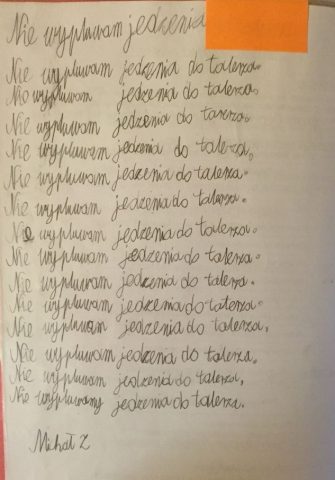 Nie wypluwam jedzenia
Nie wypluwam jedzenia do talerza.
Nio wypluwam jedzenia do talerza.
Nie wypluwam jedzenia do talerza.
Nie wypluwam jedzenia do talerza.
Nie wypluwam jedzenia do talerza.
Nie wypluwam jedzenia do talerza.
Nie wypluwam jedzenia do talerza.
Nie wypluwam jedzenia do talerza.
Nie wypluwam jedzenia do talerza.
Nie wypluwam jedzenia do talerza.
Nie wypluwam jedzenia do talerza.
Nie wypluwam jedzenia do talerza.
Nie wypluwam jedzenia do talerza.
Nie wypluwamy jedzenia do talerza.
Michał Z